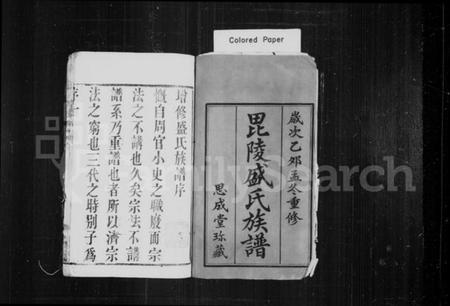 Colored Paper
歲次乙邜孟冬重修
毘陵盛氏族譜
思成堂珍藏
增修盛氏族譜序
慨自周官小史之職廢而宗
法之不講也久矣宗法不講
譜系乃重譜也者所以濟宗
法之窮也三代之時別子爲
FamilySearch